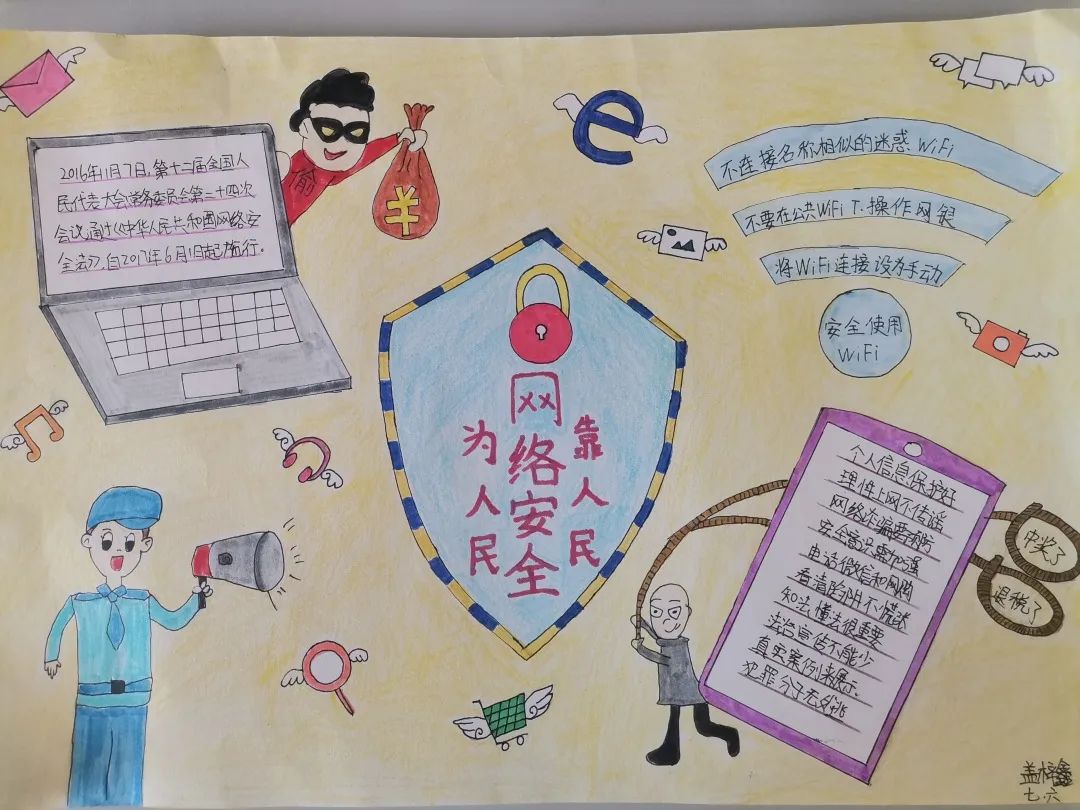 2016年11月7日,第十二届全国人
民代表大会常务委员会第二十四次
会议通过《中华人民共和国网络安
全法》,自2017年6月1日起施行.
偷
¥
e
不连接名称相似的迷惑 WiFi
不要在公共WiFi下操作网银
将WiFi连接设为手动
安全使用
WiFi
网络安全
为人民
靠人民
个人信息保护好
理性上网不传谣
网络诈骗要预防
安全意识需加强
电话微信和网购
看清陷阱不慌
知法懂法很重要
法治宣传不能少
真实案例来展示.
犯罪分子无处逃
中奖了
退税了
盖梓鑫
七.六